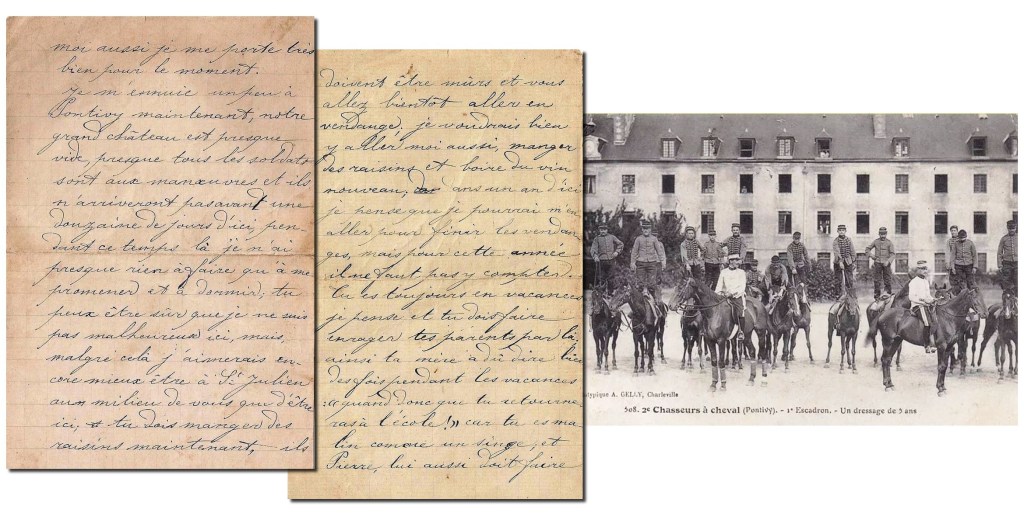 moi aussi je me porte très
bien pour le moment.
Je m'ennuie un peu à
Pontivy maintenant, notre
grand château est presque
vide, presque tous les soldats
sont aux manœuvres et ils
n'arriveront pas avant une
douzaine de jours d'ici, pen-
dant ce temps là je n'ai
presque rien à faire qu'à me
promener et à dormir; tu
peux être sûr que je ne suis
pas malheureux ici, mais,
malgré celà j'aimerais en-
core mieux être à St Julien
au milieu de vous que d'être
ici, tu dois manger des
raisins maintenant, ils
doivent être mûrs et vous
allez bientôt aller en
vendange. je voudrais bien
y aller moi aussi, manger
des raisins et boire du vin
nouveau, dans un an d'ici
je pense que je pourrai m'en
aller pour finir les vendan-
ges, mais pour cette année
il ne faut pas y compter.
Tu es toujours en vacances
je pense et tu dois faire
enrager tes parents par là,
ainsi ta mère a dû dire bien
des fois pendant les vacances
"quand donc que tu retourne
ras à l'école!" car tu es ma
lin comme un singe, et
Pierre, lui aussi doit faire
typique A. GELLY, Charleville
508. 2e Chasseurs à cheval (Pontivy). - 1e Escadron. - Un dressage de 5 ans